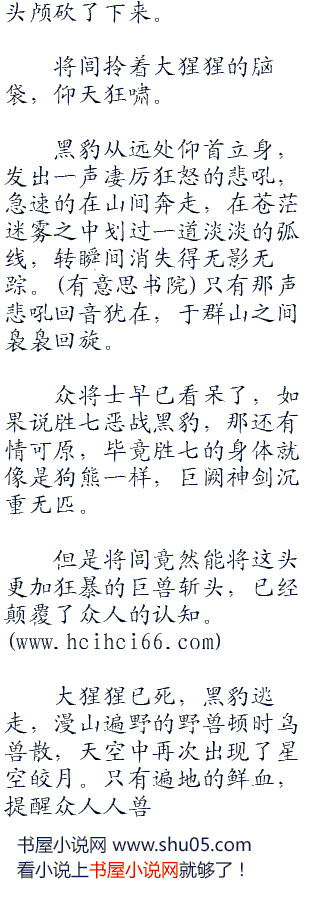 头颅砍了下来。
将闾拎着大猩猩的脑
袋，仰天狂啸。
黑豹从远处仰首立身，
发出一声凄厉狂怒的悲吼，
急速的在山间奔走，在苍茫
迷雾之中划过一道淡淡的弧
线，转瞬间消失得无影无
踪。(有意思书院)只有那声
悲吼回音犹在，于群山之间
袅袅回旋。
众将士早已看呆了，如
果说胜七恶战黑豹，那还有
情可原，毕竟胜七的身体就
像是狗熊一样，巨阙神剑沉
重无匹。
但是将闾竟然能将这头
更加狂暴的巨兽斩头，已经
颠覆了众人的认知。
(www.hcihci66.com)
大猩猩已死，黑豹逃
走，漫山遍野的野兽顿时鸟
兽散，天空中再次出现了星
空皎月。只有遍地的鲜血，
提醒众人人兽
书屋小说网 www.shu05.com
看小说上书屋小说网就够了！